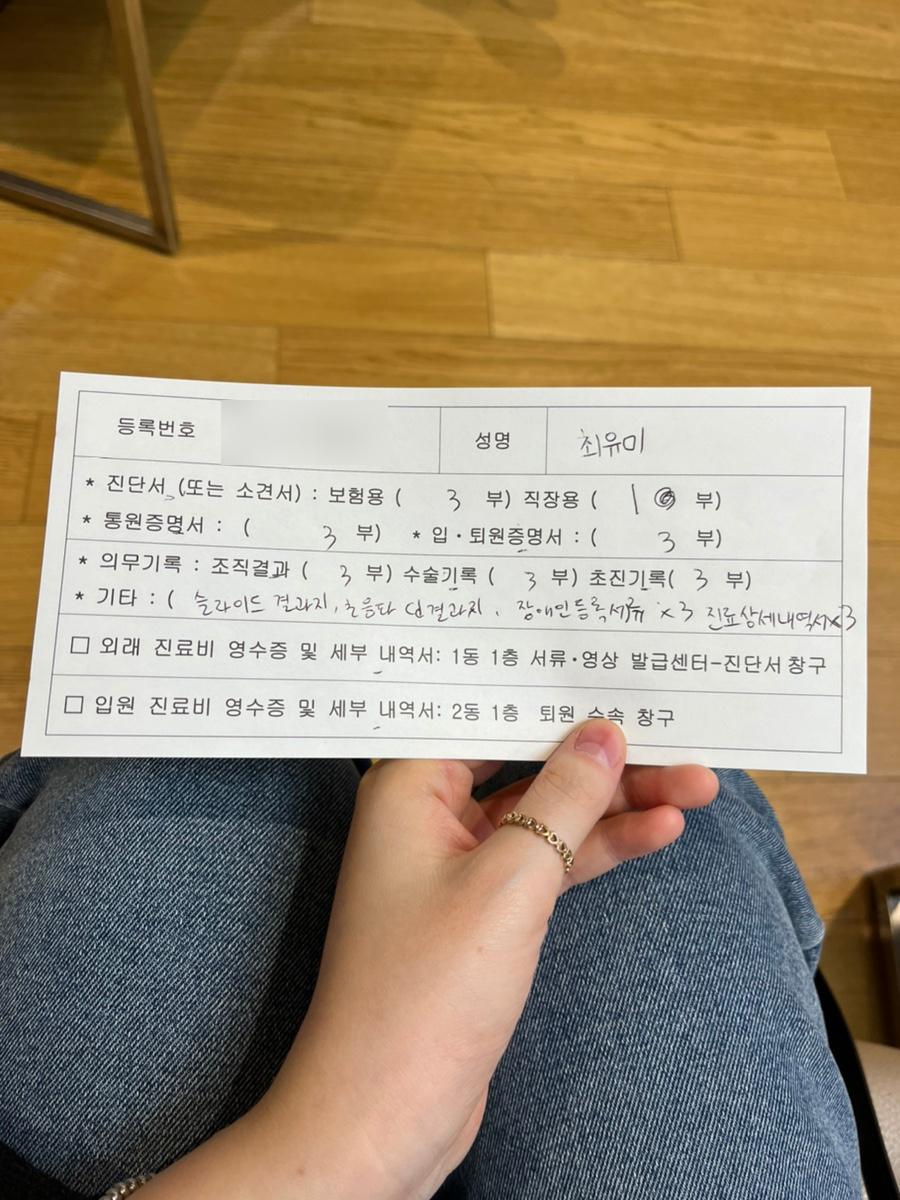 등록번호 성명 최유미
* 진단서 (또는 소견서) : 보험용 ( 3 부) 직장용 ( 1 부)
* 통원증명서 : ( 3 부) * 입·퇴원증명서 : ( 3 부)
* 의무기록 : 조직결과 ( 3 부) 수술기록 ( 3 부) 초진기록( 3 부)
* 기타 : ( 슬라이드 결과지, 초음파 cd 결과지, 장애인등록서류 x3 진료상세내역서x3
□ 외래 진료비 영수증 및 세부 내역서: 1동 1층 서류·영상 발급센터-진단서 창구
□ 입원 진료비 영수증 및 세부 내역서: 2동 1층 퇴원 수속 창구